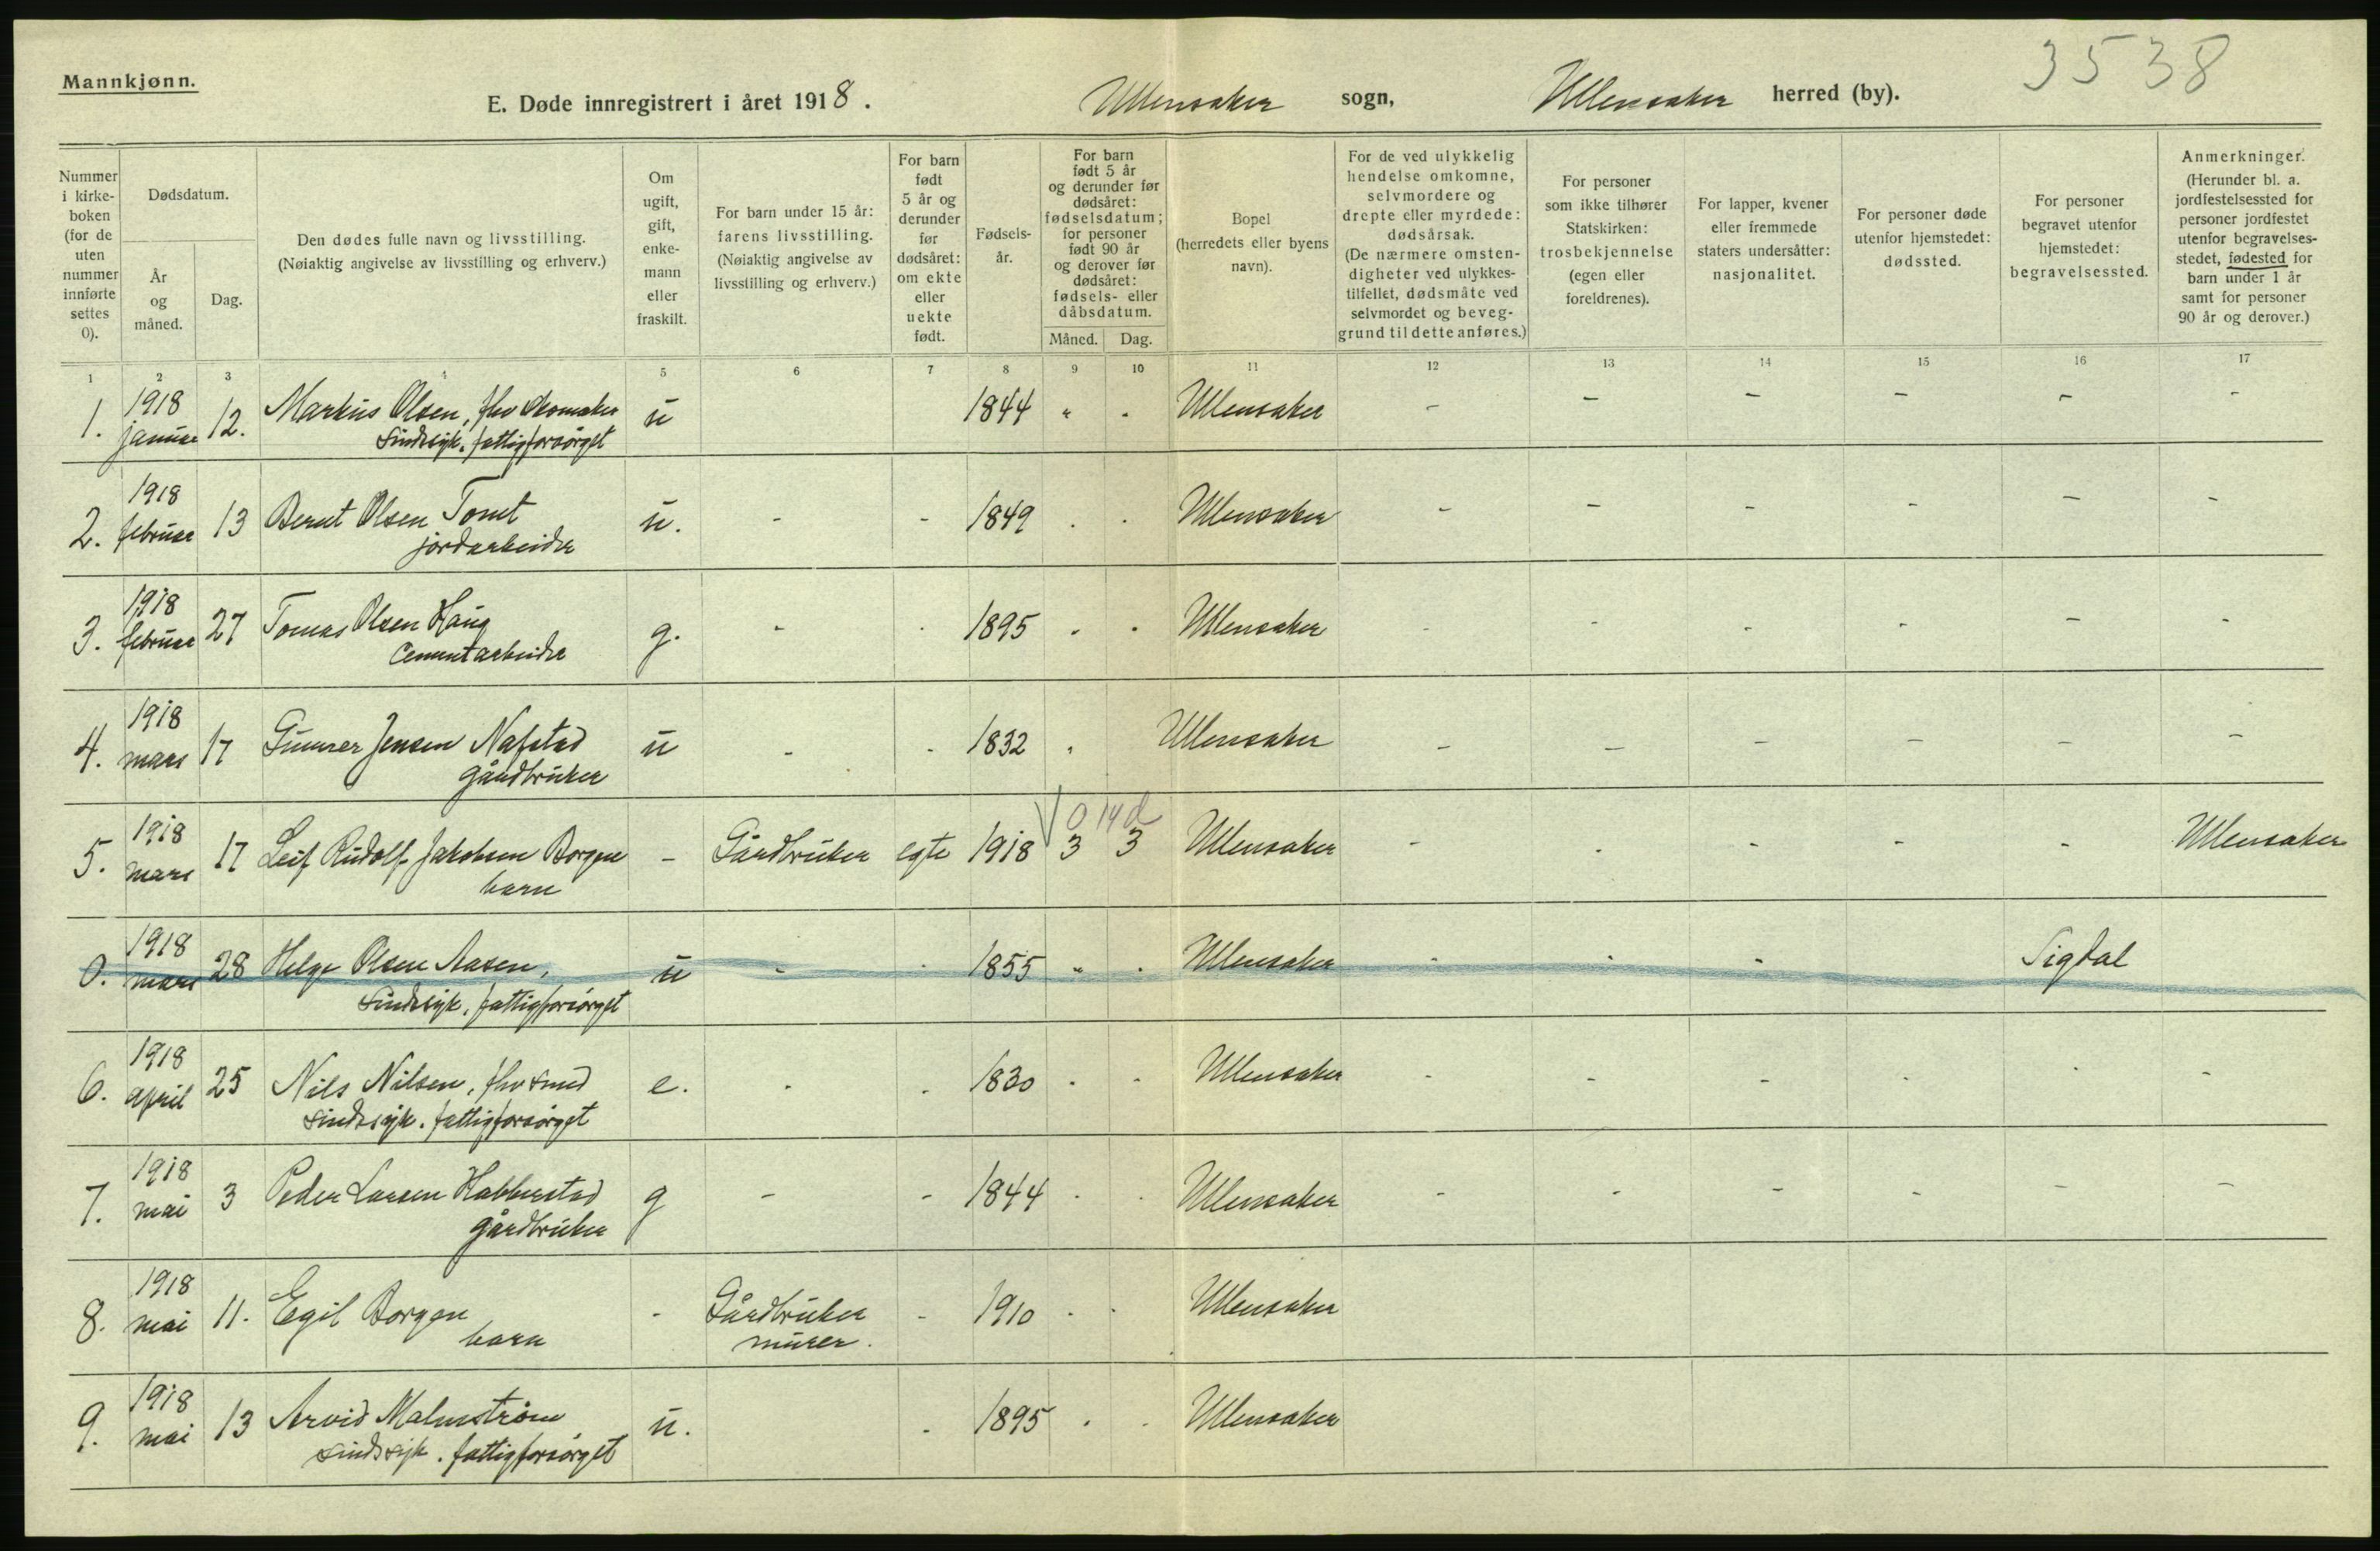 Mannkjønn.
3538
E. Døde innregistrert i året 1918. Ullensaker sogn, Ullensaker herred (by).
Nummer i kirke-boken (for de uten nummer innførte settes 0).
Dødsdatum.
År og måned.
Dag.
Den dødes fulle navn og livsstilling.
(Nøiaktig angivelse av livsstilling og erhverv.)
Om ugift, gift, enke-mann eller fraskilt.
For barn under 15 år: farens livsstilling.
(Nøiaktig angivelse av livsstilling og erhverv.)
For barn født 5 år og derunder før dødsåret: om ekte eller uekte født.
Fødsels-år.
For barn født 5 år og derunder før dødsåret: fødselsdatum; for personer født 90 år og derover før dødsåret: fødsels- eller dåbsdatum.
Måned. Dag.
Bopel (herredets eller byens navn).
For de ved ulykkelig hendelse omkomne, selvmordere og drepte eller myrdede: dødsårsak.
(De nærmere omsten-digheter ved ulykkes-tilfellet, dødsmåte ved selvmordet og beveg-grund til dette anføres.)
For personer som ikke tilhører Statskirken: trosbekjennelse (egen eller foreldrenes).
For lapper, kvener eller fremmede staters undersåtter: nasjonalitet.
For personer døde utenfor hjemstedet: dødssted.
For personer begravet utenfor hjemstedet: begravelsessted.
Anmerkninger.
(Herunder bl. a. jordfestelsessted for personer jordfestet utenfor begravelses-stedet, fødested for barn under 1 år samt for personer 90 år og derover.)
1 2 3 4 5 6 7 8 9 10 11 12 13 14 15 16 17
1. 1918 januar 12. Markus Olsen, fhv skomaker u 1844 " - Ullensaker - - - - - -
sindssyk. fattigforsørget
2. 1918 februar 13 Bernt Olsen Tomt u. - - 1849 - - Ullensaker - - - - - -
jordarbeider
3. 1918 februar 27 Tomas Olsen Haug g. - - 1895 - - Ullensaker - - - - - -
Cementarbeider
4. 1918 mars 17 Gunner Jensen Nafstad u - - 1832 - Ullensaker - - - - - -
gårdbruker
0 14 d
5. 1918 mars 17 Leif Rudolf Jakobsen Borgen - Gårdbruker egte 1918 3 3 Ullensaker - - - - - Ullensaker
barn
0. 1918 mars 28 Helge Olsen Aasen, u - - 1855 " - Ullensaker - - - Sigdal
sindssyk. fattigforsørget
6. 1918 april 25 Nils Nilsen, fhv smed e. - - 1830 - - Ullensaker - - - - - -
sindssyk. fattigforsørget
7. 1918 mai 3 Peder Larsen Habberstad g - - 1844 - - Ullensaker - - - - - -
gårdbruker
8. 1918 mai 11. Egil Borgen - Gårdbruker - 1910 - - Ullensaker
barn murer.
9. 1918 mai 13 Arvid Malmstrøm u. - 1895 - - Ullensaker
sindssyk. fattigforsørget